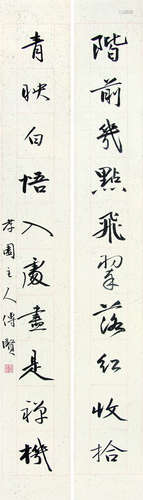 階前幾點飛翠落紅收拾
青映白悟入處盡是禪機
孝園主人傳賢